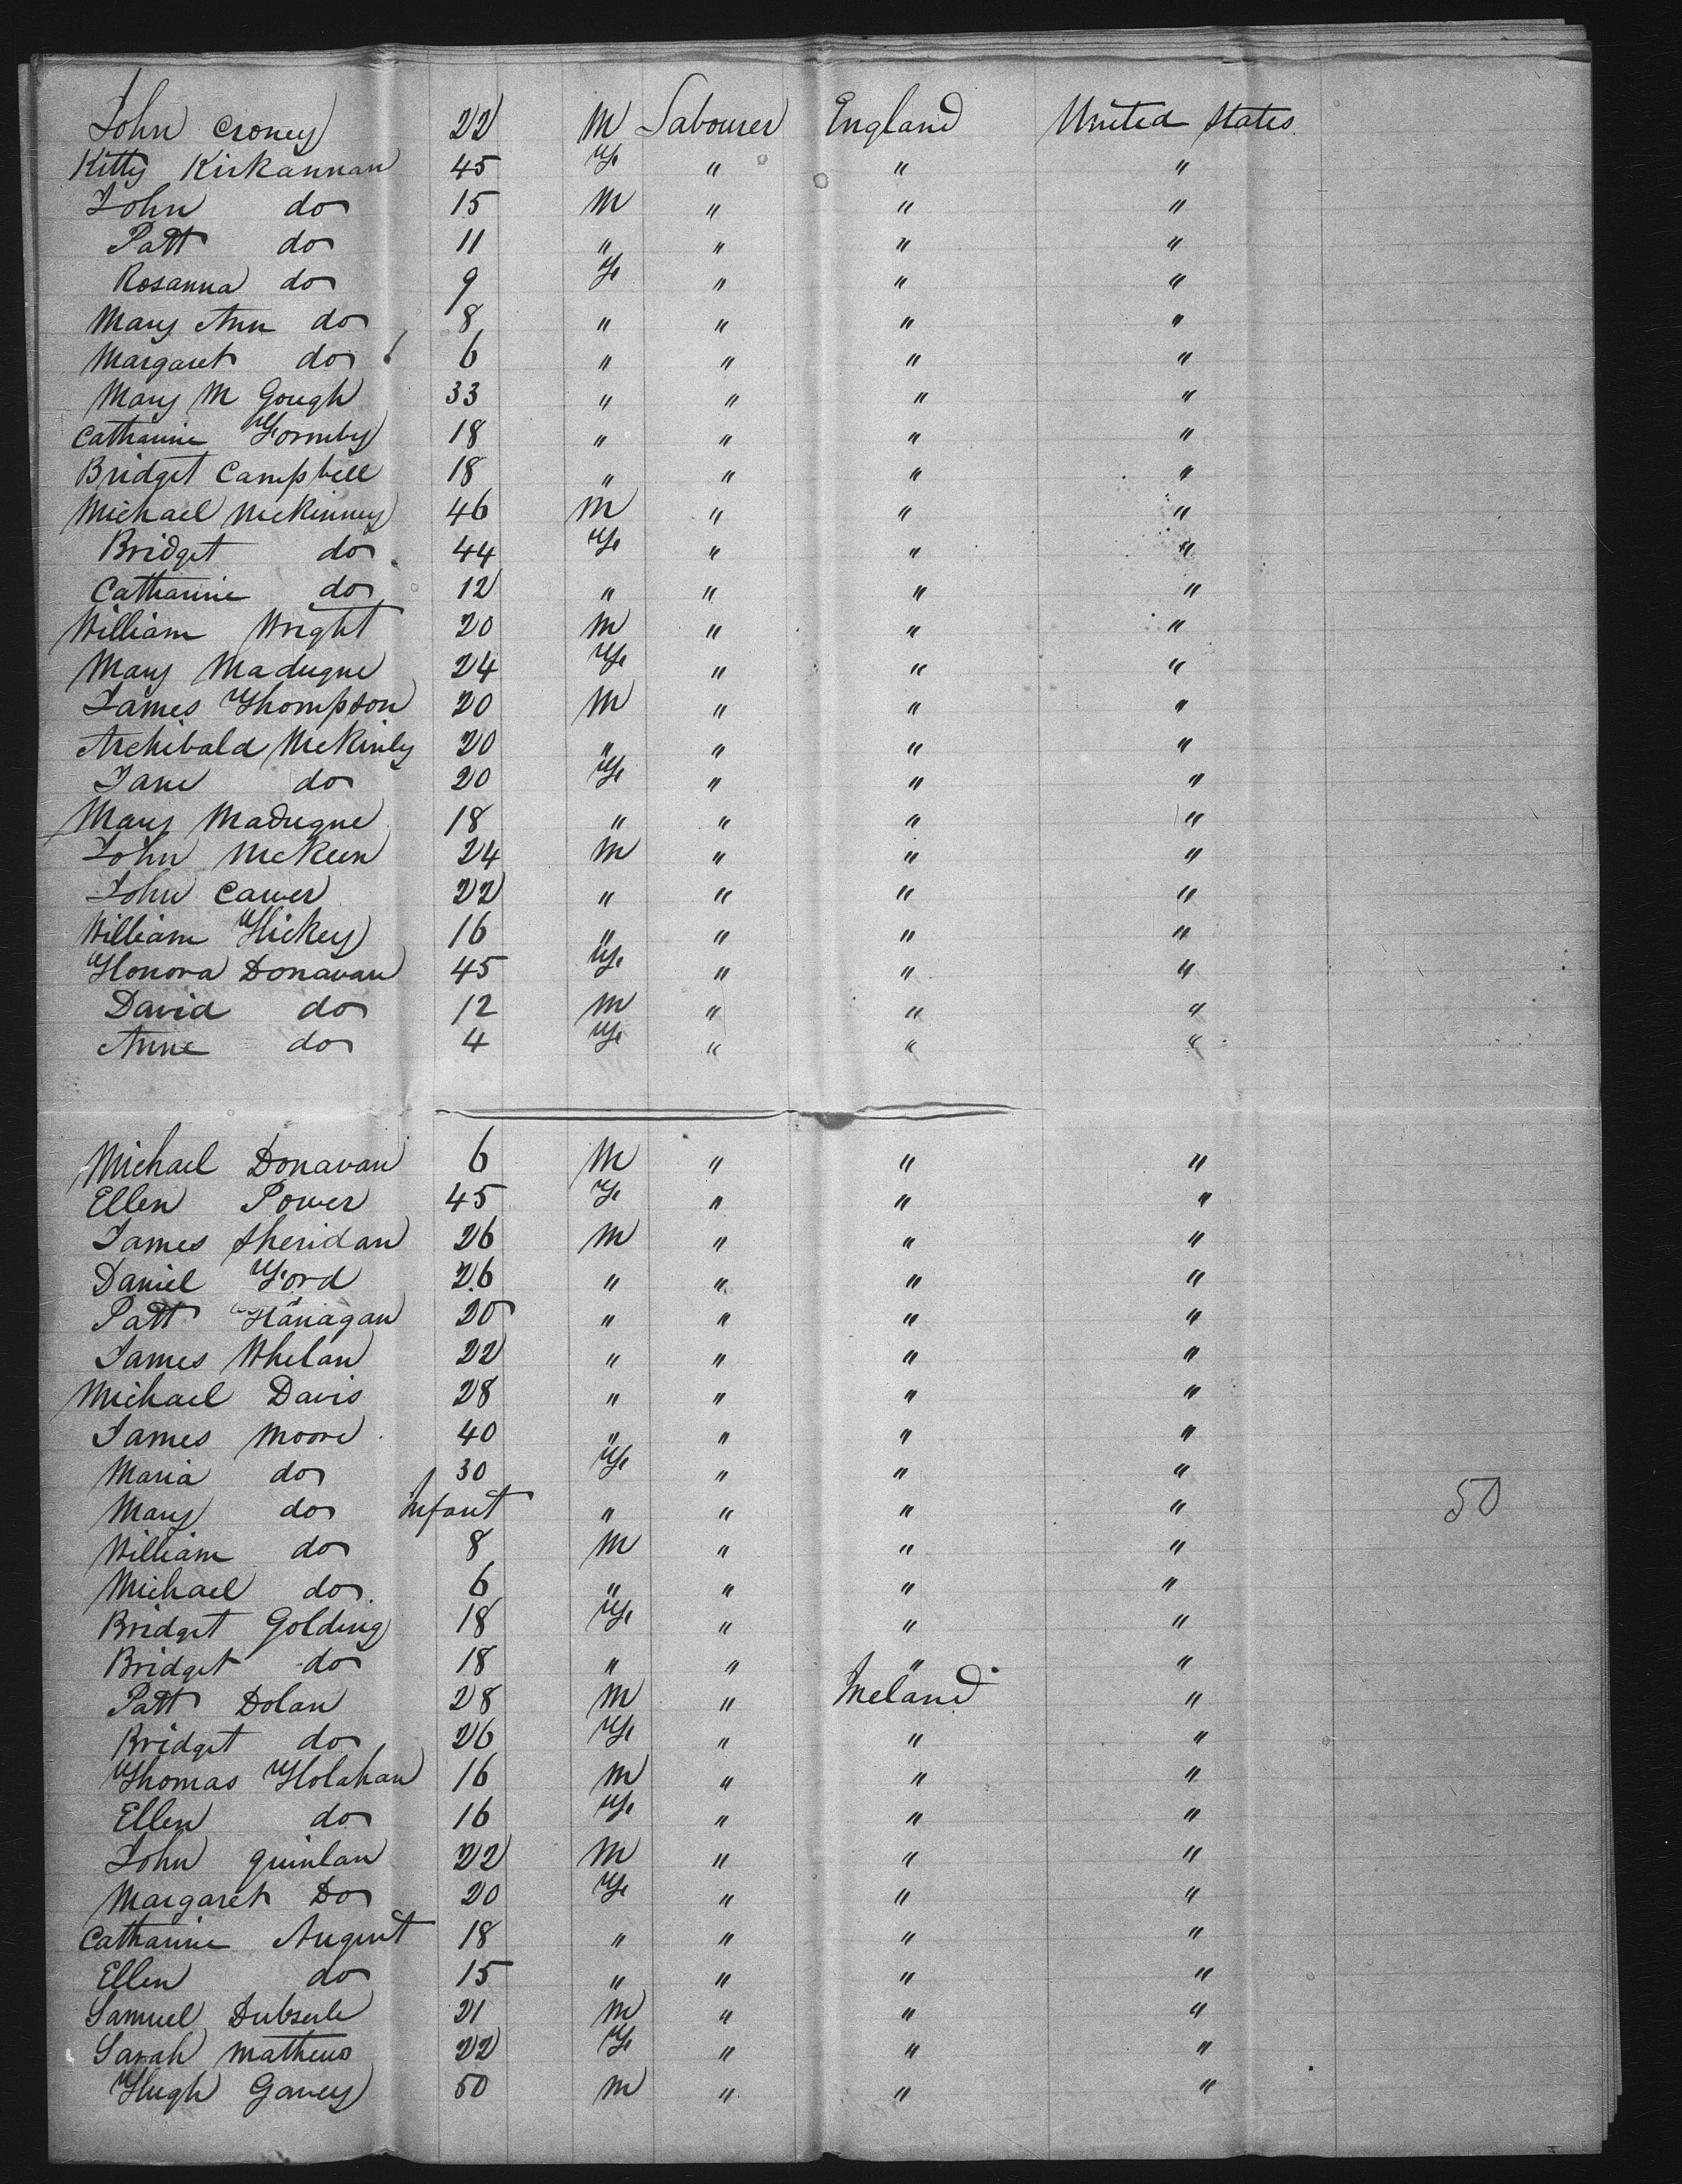 John Croney 22 M Labourer England United States
Kitty Kirkannan 45 F " " "
John do 15 M " " "
Patt do 11 " " " "
Rosanna do 9 F " " "
Mary Ann do 8 " " " "
Margaret do 6 " " " "
Mary M Gough 33 " " " "
Catharine Formby 18 " " " "
Bridget Campbell 18 " " " "
Michael McKinney 46 M " " "
Bridget do 44 F " " "
Catharine do 12 " " " "
William Wright 20 M " " "
Mary Madugne 24 F " " "
James Thompson 20 M " " "
Archibald McKinly 20 " " " "
Jane do 20 F " " "
Mary Madugne 18 " " " "
John McKeen 24 M " " "
John Carver 22 " " " "
William Hickey 16 " " " "
Honora Donavan 45 F " " "
David do 12 M " " "
Anne do 4 F " " "
Michael Donavan 6 M " " "
Ellen Power 45 F " " "
James Sheridan 26 M " " "
Daniel Ford 26 " " " "
Patt Flanagan 20 " " " "
James Whelan 22 " " " "
Michael Davis 28 " " " "
James Moore 40 " " " "
Maria do 30 F " " "
Mary do Infant " " " " 50
William do 8 M " " "
Michael do 6 " " " "
Bridget Golding 18 F " " "
Bridget do 18 " " " "
Patt Dolan 28 M " Ireland "
Bridget do 26 F " " "
Thomas Holahan 16 M " " "
Ellen do 16 F " " "
John Quinlan 22 M " " "
Margaret Do 20 F " " "
Catharine August 18 " " " "
Ellen do 15 " " " "
Samuel 21 M " " "
Sarah Mathews 22 F " " "
Hugh Gavey 50 M " " "